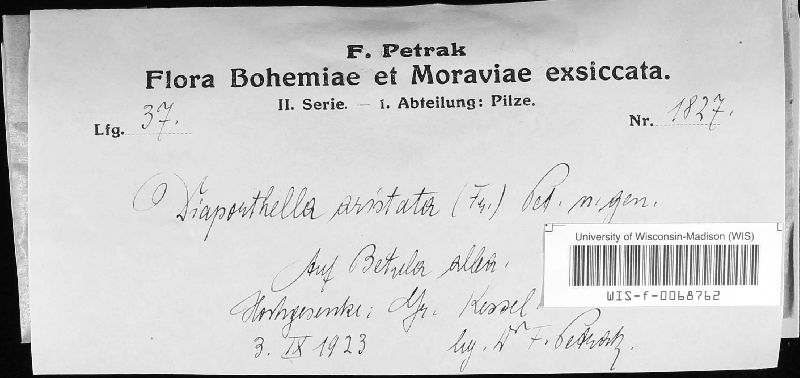 F. Petrak
Flora Bohemiae et Moraviae exsiccata.
II. Serie. – 1. Abteilung: Pilze.
Lfg. 37. Nr. 1827.
Diaporthella aristata (Fr.) Pet. n. gen.
University of Wisconsin-Madison (WIS)
WIS-f-0068762
Auf Betula alba.
Hochgesenke: Gr. Kessel
3. IX 1923 lg. Dr F. Petrak.